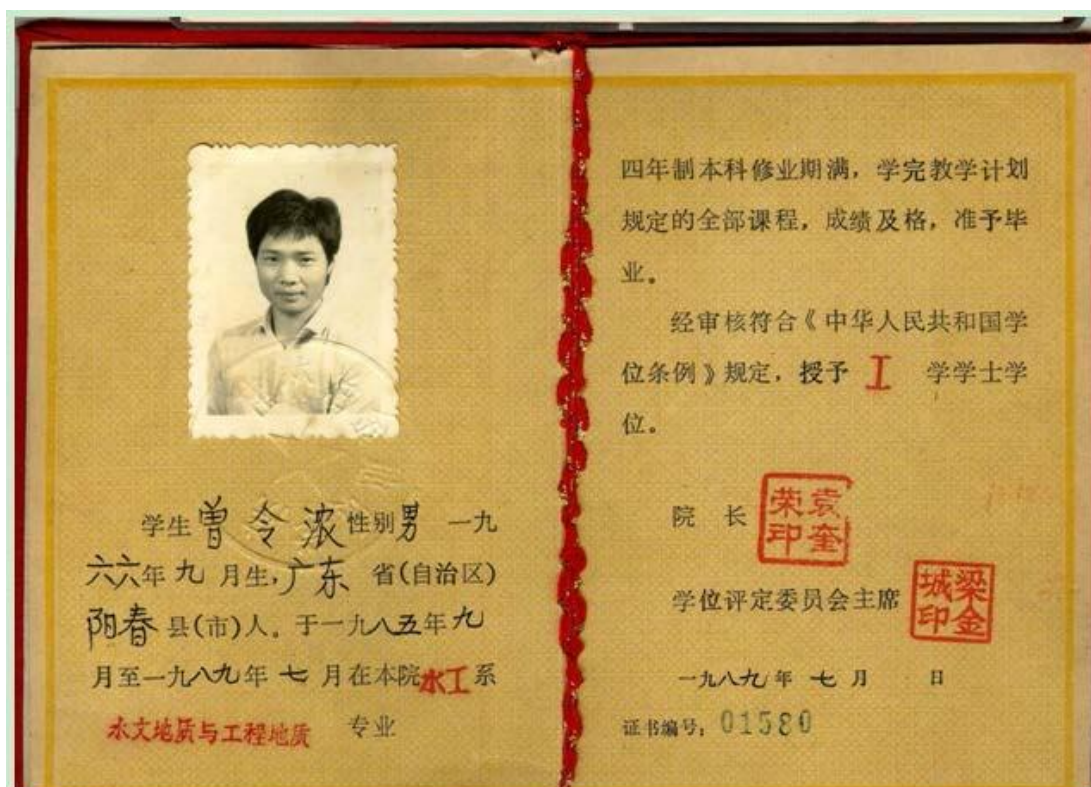 学生曾令浓性别男 一九
六六年九月生,广东 省(自治区)
阳春县(市)人。于一九八五年九
月至一九八九年七月在本院水工系
水文地质与工程地质 专业
四年制本科修业期满，学完教学计划
规定的全部课程，成绩及格，准予毕
业。
经审核符合《中华人民共和国学
位条例》规定，授予 工 学学士学
位。
院 长 袁奎荣印
学位评定委员会主席 梁金城印
一九八九年七月 日
证书编号：01580